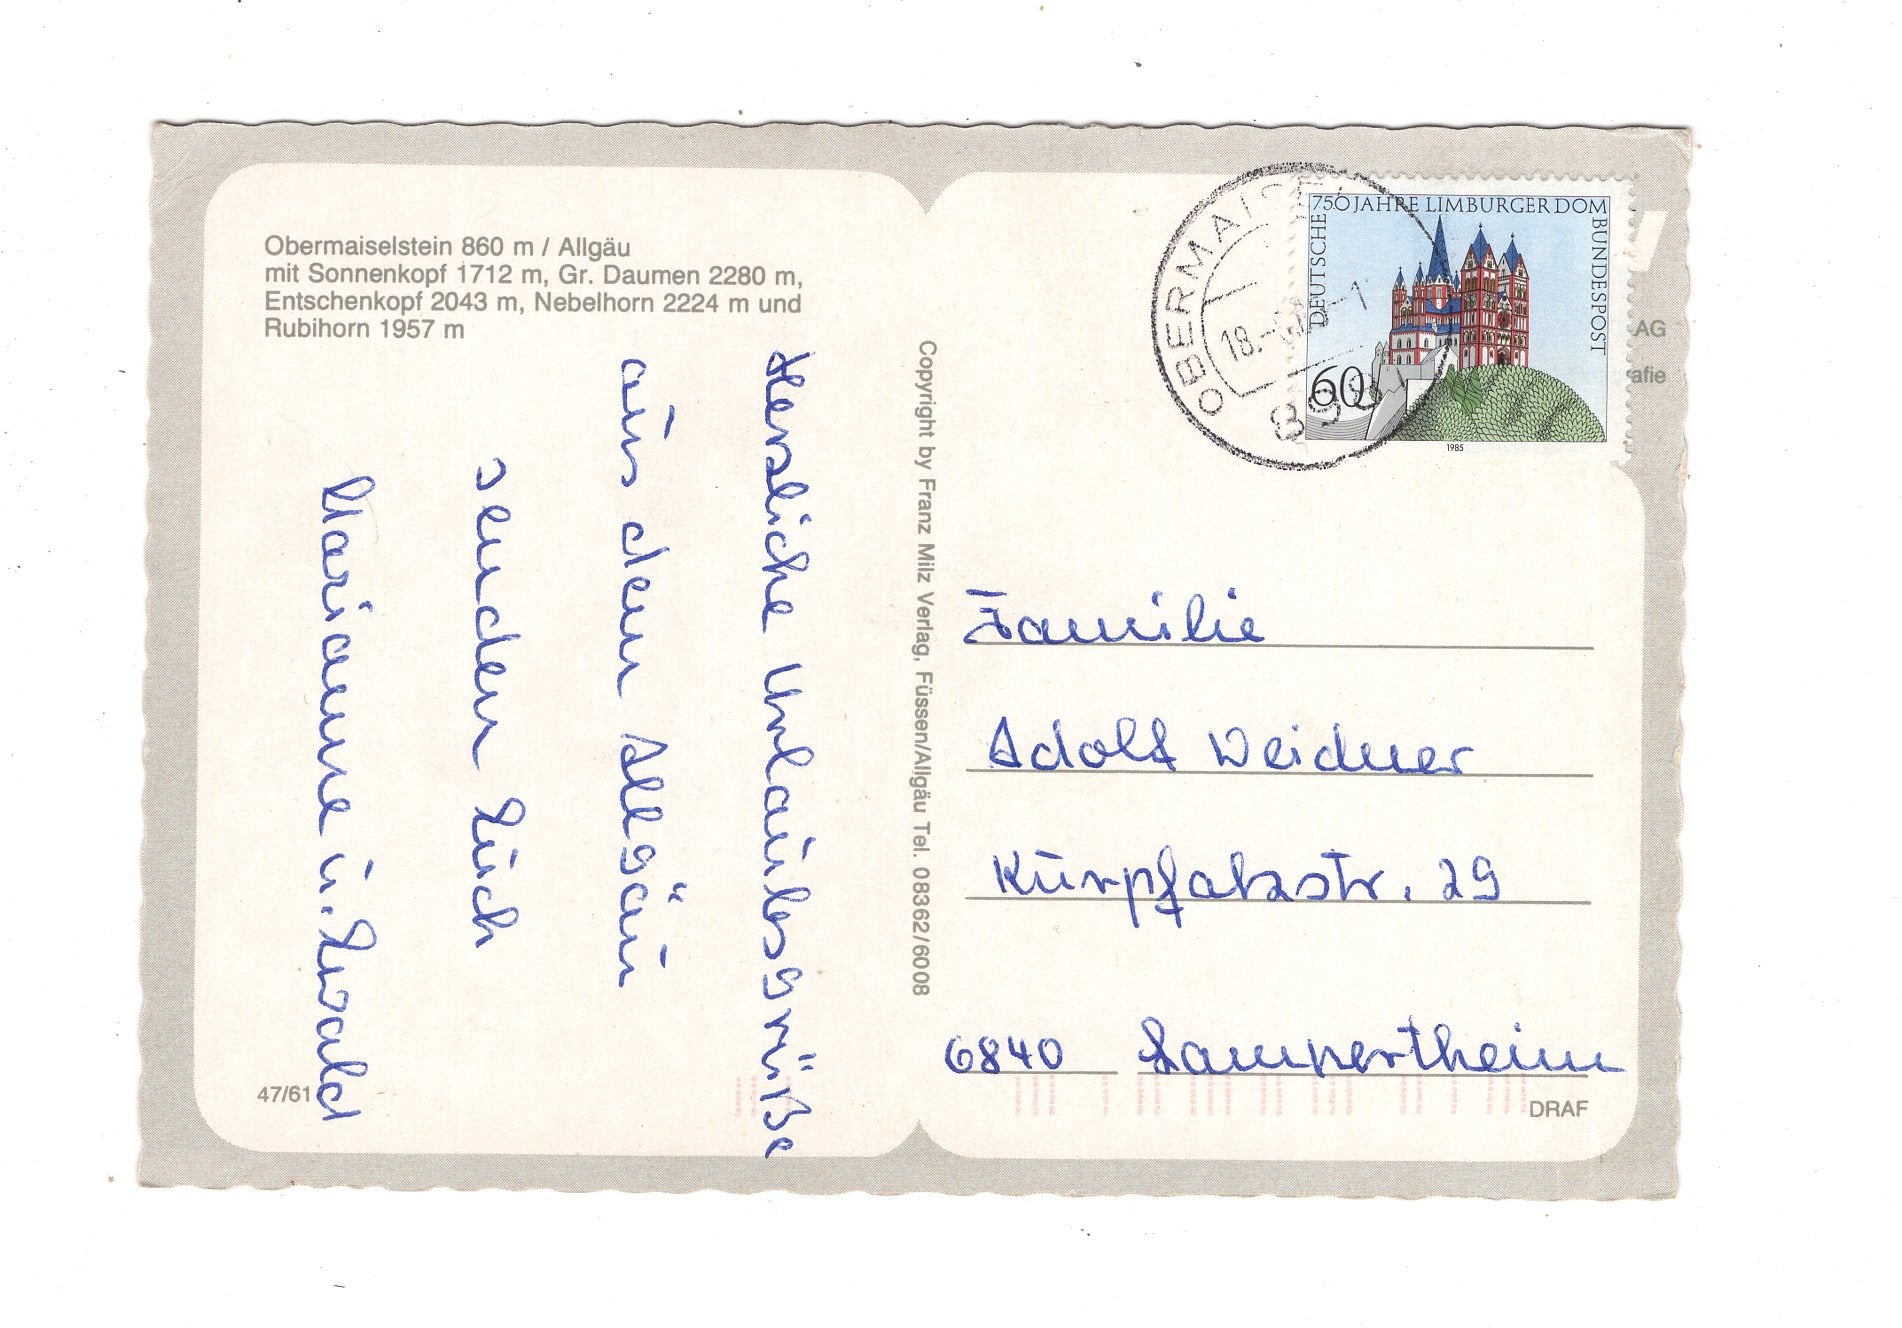 Obermaiselstein 860 m / Allgäu
mit Sonnenkopf 1712 m, Gr. Daumen 2280 m,
Entschenkopf 2043 m, Nebelhorn 2224 m und
Rubihorn 1957 m
Herzliche Urlaubsgrüße
aus dem Allgäu
senden Euch
Marianne u. Ewald
47/61
Copyright by Franz Milz Verlag, Füssen/Allgäu Tel. 08362/6008
OBERMAISE
18.
-1
750 JAHRE LIMBURGER DOM
DEUTSCHE
BUNDESPOST
60
1985
AG
afie
Familie
Adolf Weidner
Kurpfalzstr. 29
6840 Lampertheim
DRAF